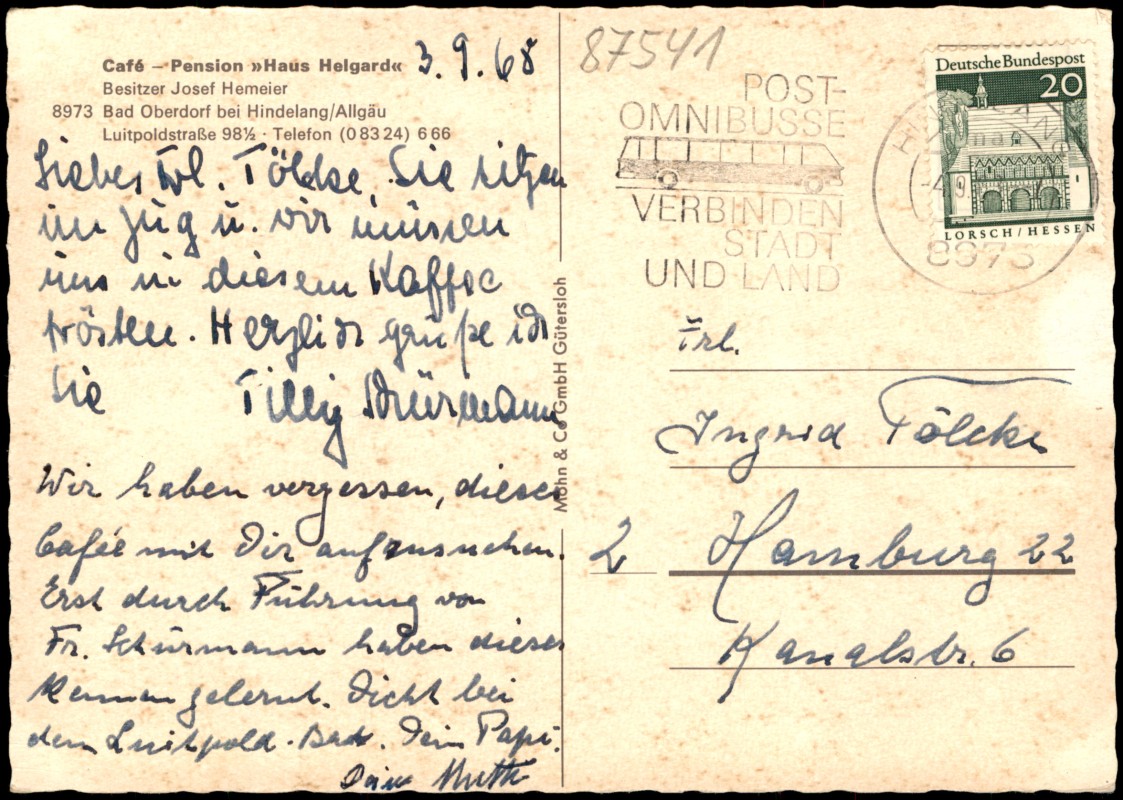 Café – Pension »Haus Helgard«
Besitzer Josef Hemeier
8973 Bad Oberdorf bei Hindelang/Allgäu
Luitpoldstraße 98½ · Telefon (0 83 24) 6 66
3.9.68
Liebes Frl. Tölcke, Sie sitzen
im Zug u. wir müssen
uns in diesem Kaffee
trösten. Herzlich grüße ich
Sie Tilly Schürmann
Wir haben vergessen, dieses
Cafée mit Dir aufzusuchen.
Erst durch Führung von
Fr. Schürmann haben dieses
kennen gelernt. Dicht bei
dem Luitpold-Bad. Dein Papi.
Deine Mutti
Mohn & Co GmbH Gütersloh
87541
POST-
OMNIBUSSE
VERBINDEN
STADT
UND LAND
Deutsche Bundespost
20
LORSCH/HESSEN
8973
Frl.
Ingrid Tölcke
2 Hamburg 22
Kanalstr. 6